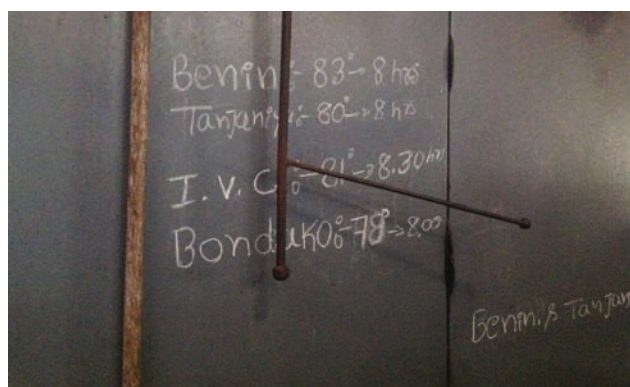 Benin:- 83° → 8 hrs
Tanjaniya:- 80° → 8 hrs
I.V.C:- 81° → 8.30 hrs
Bonduko:- 78° → 8.00
Benin. & Tanjan